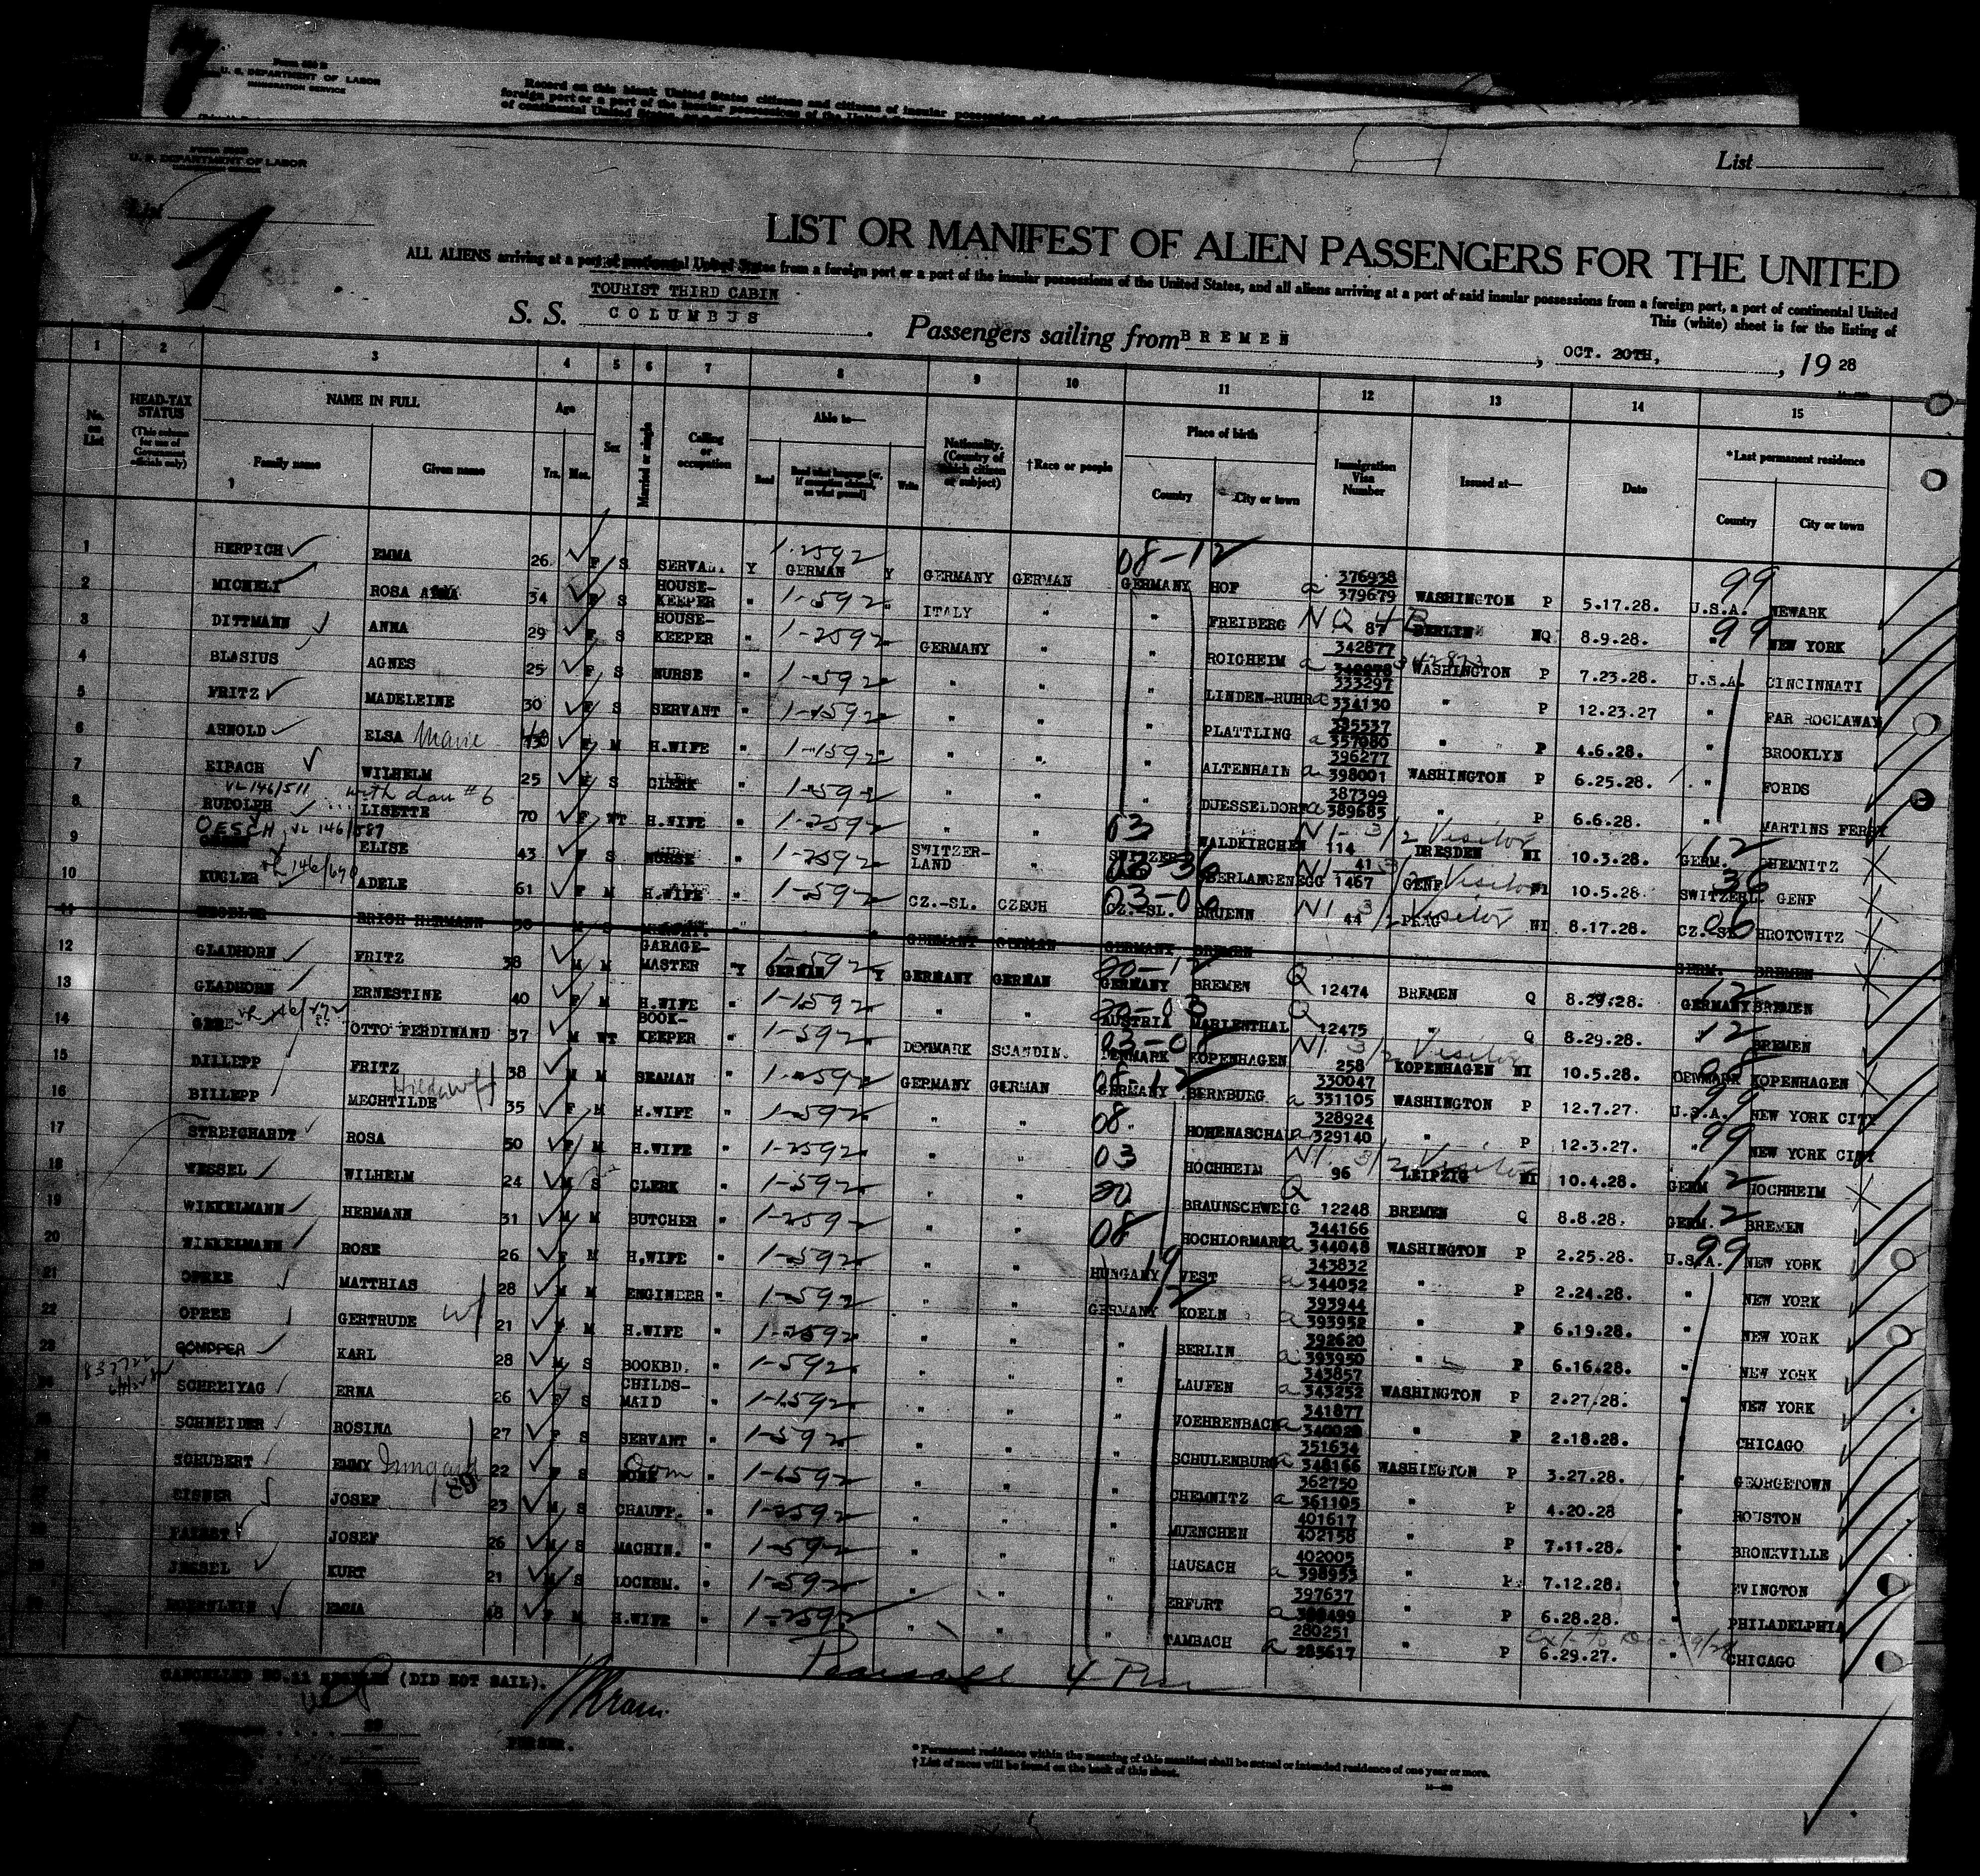 Form 500 B
U. S. DEPARTMENT OF LABOR
IMMIGRATION SERVICE
Record on this blank United States citizens and citizens of insular possessions
foreign port or a part of the insular possessions of the
of continental United States, or a port
U. S. DEPARTMENT OF LABOR
List
List
1
LIST OR MANIFEST OF ALIEN PASSENGERS FOR THE UNITED
ALL ALIENS arriving at a port of continental United States from a foreign port or a port of the insular possessions of the United States, and all aliens arriving at a port of said insular possessions from a foreign port, a port of continental United
This (white) sheet is for the listing of
TOURIST THIRD CABIN
S. S. COLUMBUS. Passengers sailing from BREMEN, OCT. 20TH, 1928
1 2 3 4 5 6 7 8 9 10 11 12 13 14 15
No. on List
HEAD-TAX STATUS (This column for use of Government officials only)
NAME IN FULL Family name Given name
Age Yrs. Mos.
Sex
Married or single
Calling or occupation
Able to— Read Read what language [or, if exemption claimed, on what ground] Write
Nationality. (Country of which citizen or subject)
†Race or people
Place of birth Country City or town
Immigration Visa Number
Issued at—
Date
*Last permanent residence Country City or town
1 HERPICH EMMA 26 F S SERVANT Y 1-2592 GERMAN Y GERMANY GERMAN 08-12 GERMANY HOF a 376938 379679 WASHINGTON P 5.17.28. 99 U.S.A. NEWARK
2 MICHELI ROSA 34 F S HOUSE-KEEPER " 1-592 ITALY " " FREIBERG NQ 4B 87 BERLIN NQ 8.9.28. 99 " NEW YORK
3 DITTMANN ANNA 29 F S HOUSE-KEEPER " 1-2592 GERMANY " " ROIGHEIM a 342877 WASHINGTON P 7.23.28. U.S.A. CINCINNATI
4 BLASIUS AGNES 25 F S NURSE " 1-592 " " " LINDEN-RUHR a 333297 334130 " P 12.23.27 " FAR ROCKAWAY
5 FRITZ MADELEINE 30 F S SERVANT " 1-1592 " " " PLATTLING a " " P 4.6.28. " BROOKLYN
6 ARNOLD ELSA Marie F M H.WIFE " 1-1592 " " " ALTENHAIN a 396277 398001 WASHINGTON P 6.25.28. " FORDS
7 EIBACH WILHELM 25 M S CLERK " 1-592 " " " DUESSELDORF a 387399 389685 " P 6.6.28. " MARTINS FERRY
VL 146/511 with dau #6
8 RUDOLPH LISETTE 70 F WT H.WIFE " 1-2592 " " 03 WALDKIRCHEN NI-3/2 Visitor 114 DRESDEN NI 10.3.28. 12 GERM. CHEMNITZ
9 OESCH VL 146/587 ELISE 43 F S NURSE " 1-2592 SWITZER-LAND " SWITZERL. OBERLANGENEGG NI 3/2 Visitor 41 1467 GENF NI 10.5.28. 36 SWITZERL. GENF
10 KUGLER ADELE 61 F M H.WIFE " 1-592 CZ.-SL. CZECH 03-06 CZ.-SL. BRUENN NI 3/2 Visitor 44 PRAG NI 8.17.28. 06 CZ.SL. HROTOWITZ
11 ERICH HERMANN M S " " GERMANY GERMAN GERMANY BREMEN GERM. BREMEN
12 GLADHORN FRITZ 38 M M GARAGE-MASTER Y 1-592 GERMAN Y GERMANY GERMAN 20-12 GERMANY BREMEN Q 12474 BREMEN Q 8.29.28. 12 GERMANY BREMEN
13 GLADHORN ERNESTINE 40 F M H.WIFE " 1-1592 " " 20-03 AUSTRIA MARIENTHAL Q 12475 " Q 8.29.28. 12 BREMEN
14 OTTO FERDINAND 37 M WT BOOK-KEEPER " 1-592 DENMARK SCANDIN. DENMARK KOPENHAGEN NI 3/2 Visitor 258 KOPENHAGEN NI 10.5.28. DENMARK KOPENHAGEN
15 BILLEPP FRITZ 38 M M SEAMAN " 1-2592 GERMANY GERMAN 08-12 GERMANY BERNBURG a 330047 331105 WASHINGTON P 12.7.27. 99 U.S.A. NEW YORK CITY
16 BILLEPP MECHTILDE 35 F M H.WIFE " 1-592 " " 08. HOHENASCHAU a 328924 329140 " P 12.3.27. 99 " NEW YORK CITY
17 STREICHARDT ROSA 50 F M H.WIFE " 1-2592 " " 03 HOCHHEIM NI 3/2 Visitor 96 LEIPZIG NI 10.4.28. 12 GERM HOCHHEIM
18 WESSEL WILHELM 24 M S CLERK " 1-592 " " 20 BRAUNSCHWEIG Q 12248 BREMEN Q 8.8.28. 12 GERM. BREMEN
19 WINKELMANN HERMANN 31 M M BUTCHER " 1-2592 " " 08 HOCHLORMARK a 344166 344048 WASHINGTON P 2.25.28. 99 U.S.A. NEW YORK
20 WINKELMANN ROSE 26 F M H,WIFE " 1-592 " " 19 HUNGARY VEST a 343832 344052 " P 2.24.28. " NEW YORK
21 OPREE MATTHIAS 28 M M ENGINEER " 1-592 " " 12 GERMANY KOELN a 393944 393952 " P 6.19.28. " NEW YORK
22 OPREE GERTRUDE W/ 21 F M H.WIFE " 1-2592 " " " BERLIN a 392620 393950 " P 6.16.28. " NEW YORK
23 GOMPPER KARL 28 M S BOOKBD. " 1-592 " " " LAUFEN a 343857 343252 WASHINGTON P 2.27.28. " NEW YORK
24 SCHREIYAG ERNA 26 F S CHILDS-MAID " 1-1592 " " " VOEHRENBACH a 341877 340028 " P 2.18.28. " CHICAGO
SCHNEIDER ROSINA 27 F S SERVANT " 1-592 " " " SCHULENBURG a 351634 348166 WASHINGTON P 3.27.28. " GEORGETOWN
SCHUBERT EMMY Irmgard 22 F S NONE Dom " 1-1592 " " " CHEMNITZ a 362750 361105 " P 4.20.28 " HOUSTON
EISNER JOSEF 23 M S CHAUFF. " 1-2592 " " " MUENCHEN 401617 402158 " P 7.11.28. " BRONXVILLE
JOSEF 26 M S MACHIN. " 1-592 " " " HAUSACH a 402005 398953 " P 7.12.28. " EVINGTON
JESSEL KURT 21 M S LOCKSM. " 1-592 " " " ERFURT a 397637 " P 6.28.28. " PHILADELPHIA
EMMA 48 F M H.WIFE " 1-2592 " " " TAMBACH a 280251 285617 " P 6.29.27. " CHICAGO
CANCELLED NO.11 (DID NOT SAIL).
PURSER.
* Permanent residence within the meaning of this manifest shall be actual or intended residence of one year or more.
† List of races will be found on the back of this sheet.